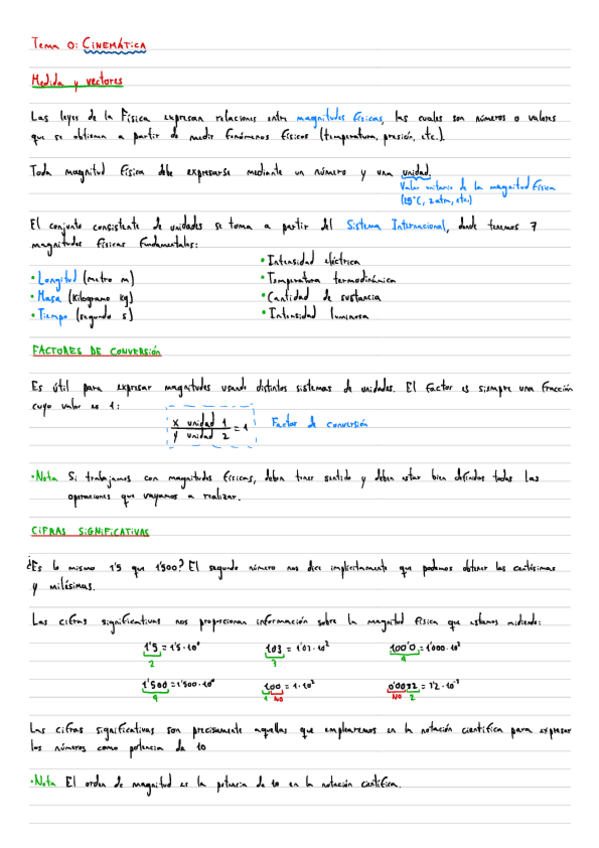 Tema 0: CINEMÁTICA
Medida y vectores
Las leyes de la Física expresan relaciones entre magnitudes físicas, las cuales son números o valores
que se obtienen a partir de medir fenómenos físicos (temperatura, presión, etc.).
Toda magnitud física debe expresarse mediante un número y una unidad.
Valor unitario de la magnitud física
(25°C, 2 atm, etc.)
El conjunto consistente de unidades se toma a partir del Sistema Internacional, donde tenemos 7
magnitudes físicas fundamentales:
• Longitud (metro m)
• Masa (kilogramo kg)
• Tiempo (segundo s)
• Intensidad eléctrica
• Temperatura termodinámica
• Cantidad de sustancia
• Intensidad luminosa
FACTORES DE CONVERSIÓN
Es útil para expresar magnitudes usando distintos sistemas de unidades. El factor es siempre una fracción
cuyo valor es 1:
x unidad 1
y unidad 2 = 1 Factor de conversión
• Nota Si trabajamos con magnitudes físicas, deben tener sentido y deben estar bien definidas todas las
operaciones que vayamos a realizar.
CIFRAS SIGNIFICATIVAS
¿Es lo mismo 1'5 que 1'500? El segundo número nos dice implícitamente que podemos obtener las centésimas
y milésimas.
Las cifras significativas nos proporcionan información sobre la magnitud física que estamos midiendo:
1'5 = 1'5·10⁰ 103 = 1'03·10² 100'0 = 1'000·10²
2 3 4
1'500 = 1'500·10⁰ 100 = 1·10² 0'0032 = 3'2·10⁻³
4 1 NO NO 2
Las cifras significativas son precisamente aquellas que emplearemos en la notación científica para expresar
los números como potencia de 10
• Nota El orden de magnitud es la potencia de 10 en la notación científica.